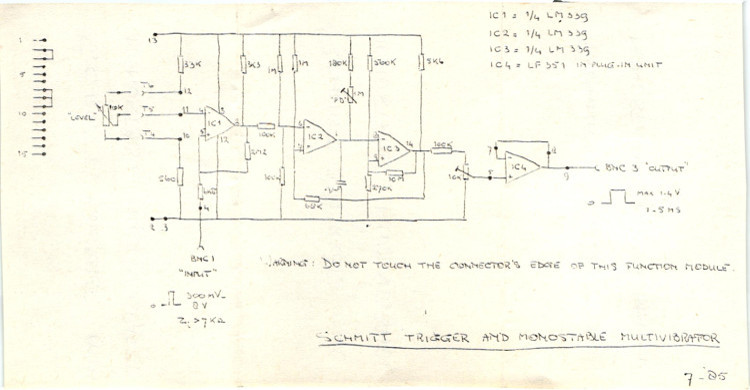 IC1 = 1/4 LM 339
IC2 = 1/4 LM 339
IC3 = 1/4 LM 339
IC4 = LF 351 IN PLUG-IN UNIT
1
5
10
15
13
33K
3K3
1M
1M
180K
500K
5K6
T6
12
"LEVEL"
T5
11
T4
10
4
5
3
12
IC1
100K
2M2
IC2
1M
IC3
14
10M
270K
100K
10K
7
8
IC4
8
9
BNC 3 "OUTPUT"
MAX 1.4V
1.5 MS
0
4
2
3
BNC1
"INPUT"
0
500 mV
0 V
Z > 7KΩ
WARNING: DO NOT TOUCH THE CONNECTOR'S EDGE OF THIS FUNCTION MODULE.
SCHMITT TRIGGER AND MONOSTABLE MULTIVIBRATOR
7-'85